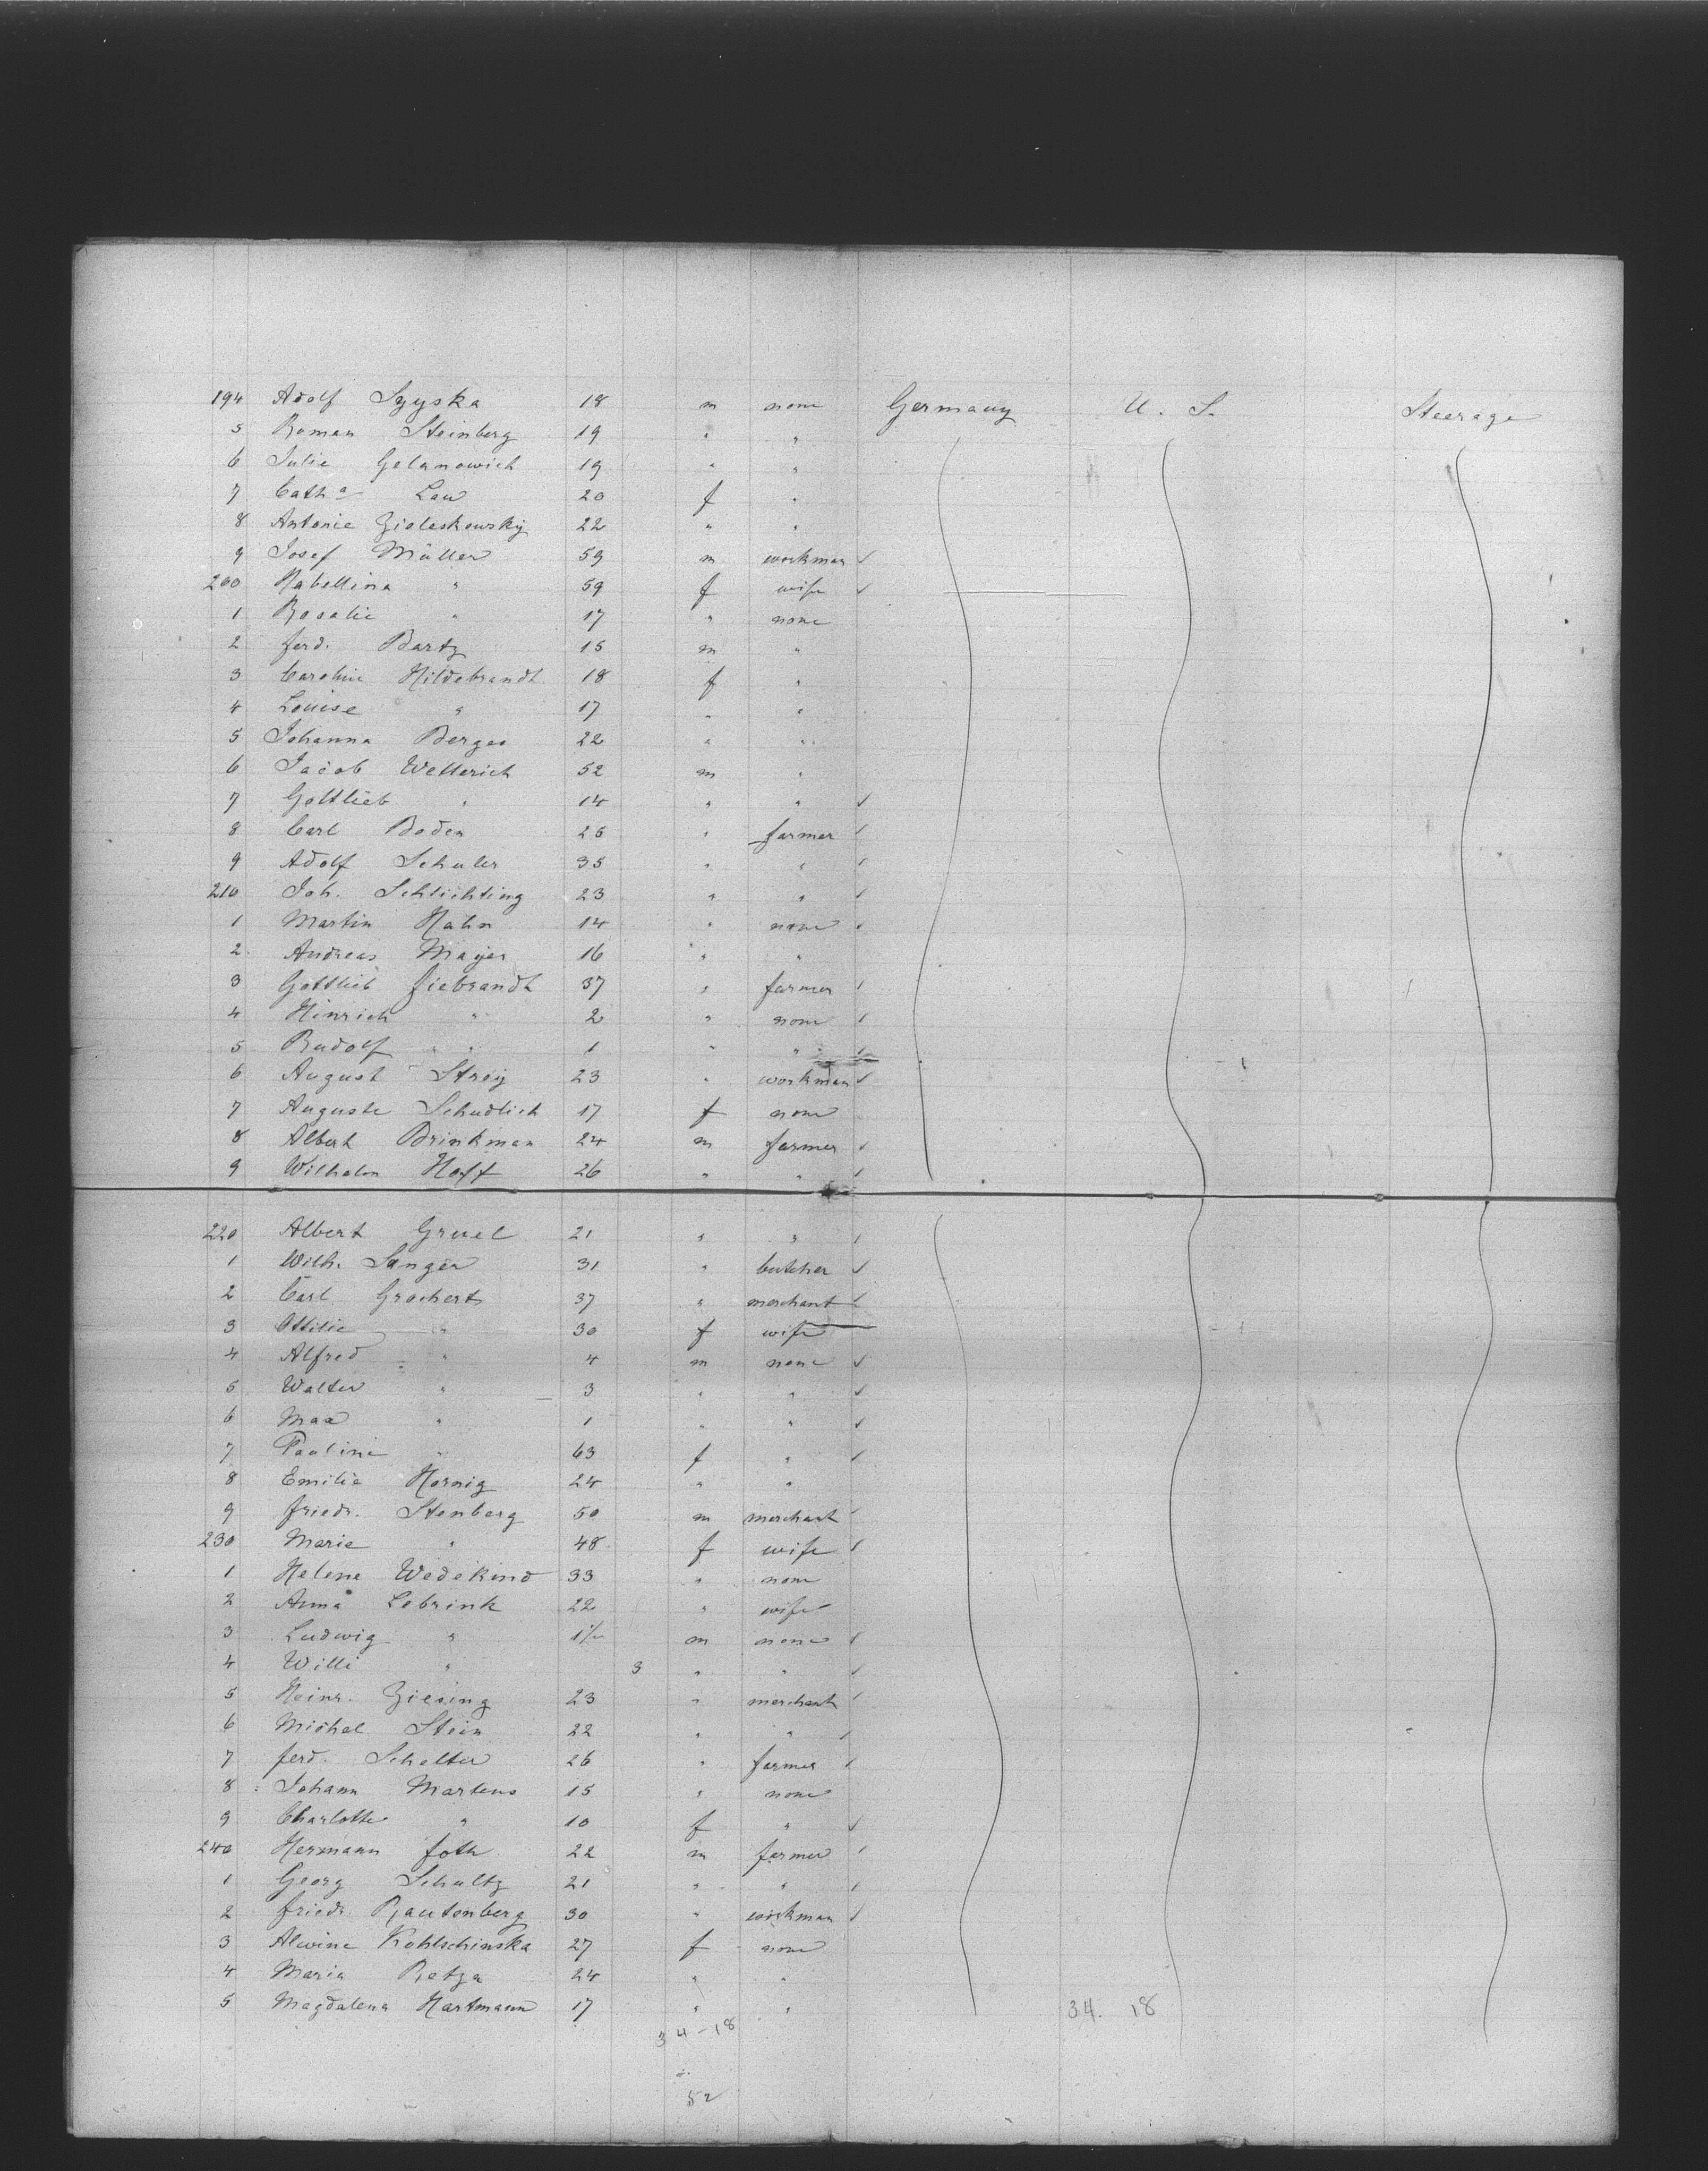 194 Adolf Szyska 18 m none Germany U. S. Steerage
5 Roman Steinberg 19 " "
6 Julie Gelanowich 19 " "
7 Cath<sup>a</sup> Lau 20 f "
8 Antonie Zioleskowsky 22 " "
9 Josef Müller 59 m workman ✓
200 Habellina " 59 f wife ✓
1 Rosalie " 17 " none
2 Ferd. Bartz 15 m "
3 Caroline Hildebrandt 18 f "
4 Louise " 17 " "
5 Johanna Berges 22 " "
6 Jacob Wetterich 52 m "
7 Gottlieb " 14 " " ✓
8 Carl Boden 25 " farmer ✓
9 Adolf Schuler 35 " " ✓
210 Joh. Schlichting 23 " " ✓
1 Martin Hahn 14 " none ✓
2 Andreas Mayer 16 " "
3 Gottlieb Fiebrandt 37 " farmer ✓
4 Hinrich " 2 " none ✓
5 Rudolf " 1 " " ✓
6 August Stroy 23 " workman ✓
7 Auguste Schudlich 17 f none
8 Albert Brinkman 24 m farmer ✓
9 Wilhelm Hoff 26 " " ✓
220 Albert Gruel 21 " " ✓
1 Wilh. Sanger 31 " butcher ✓
2 Carl Grochert 37 " merchant ✓
3 Ottilie " 30 f wife
4 Alfred " 4 m none ✓
5 Walter " 3 " " ✓
6 Max " 1 " " ✓
7 Pauline " 63 f " ✓
8 Emilie Hornig 24 " "
9 Friedr. Stenberg 50 m merchant ✓
230 Marie " 48 f wife ✓
1 Helene Wedekind 33 " none
2 Anna Lebrink 22 " wife
3 Ludwig " 1½ m none ✓
4 Willi " 3 " " ✓
5 Heinr. Giesing 23 " merchant ✓
6 Michel Stein 22 " " ✓
7 Ferd. Schelter 26 " farmer ✓
8 Johann Martens 15 " none
9 Charlotte " 10 f " ✓
240 Hermann Foth 22 m farmer ✓
1 Georg Schultz 21 " " ✓
2 Friedr. Rautenberg 30 " workman ✓
3 Alwine Kohlschinska 27 f none
4 Maria Retza 24 " "
5 Magdalena Hartmann 17 " " 34. 18
34-18
52